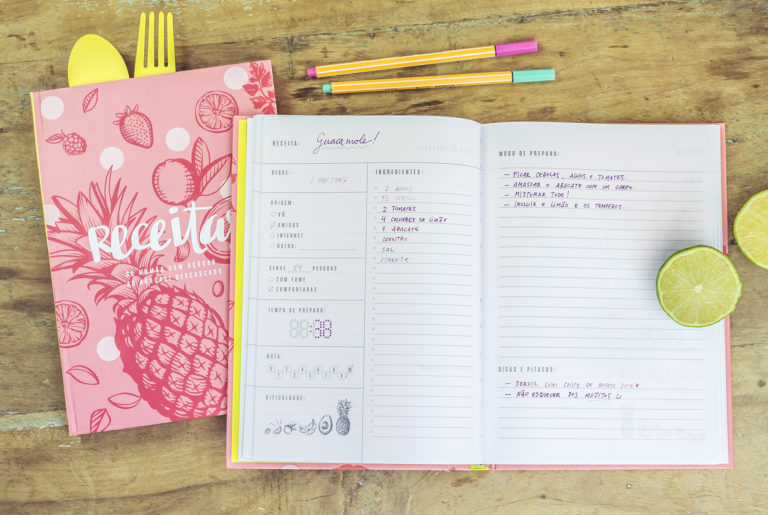 Receitas
DO MAMÃO COM AÇÚCAR
AO ABACAXI DESCASCADO
RECEITA: Guacamole!
DESDE:
ORIGEM:
VÓ
AMIGOS
INTERNET
OUTRO:
SERVE 04 PESSOAS
COM FOME
COMPORTADAS
TEMPO DE PREPARO:
NOTA:
DIFICULDADE:
INGREDIENTES:
2 ALHOS
1/2 CEBOLA
2 TOMATES
4 COLHERES DE LIMÃO
1 ABACATE
COENTRO
SAL
PIMENTA
MODO DE PREPARO:
– PICAR CEBOLAS, ALHOS E TOMATES.
– AMASSAR O ABACATE COM UM GARFO.
– MISTURAR TUDO!
– INCLUIR O LIMÃO E OS TEMPEROS.
DICAS E PITACOS:
– SERVIR COM CHIPS DE BATATA DOCE
– NÃO ESQUECER DOS MOJITOS